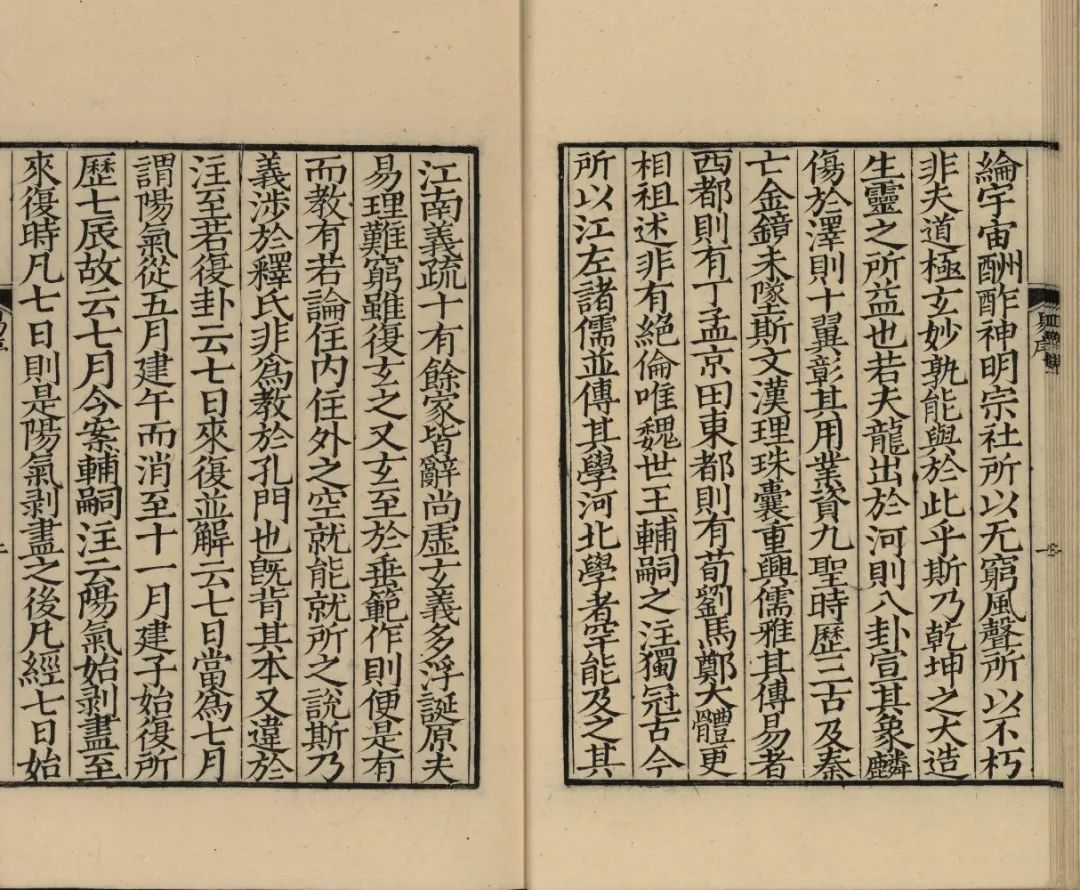 綸宇宙酬酢神明宗社所以无窮風聲所以不朽
非夫道極玄妙孰能與於此乎斯乃乾坤之大造
生靈之所益也若夫龍出於河則八卦宣其象麟
傷於澤則十翼彰其用業資九聖時歷三古及秦
亡金鏡未墜斯文漢理珠囊重興儒雅其傳易者
西都則有丁孟京田東都則有荀劉馬鄭大體更
相祖述非有絕倫唯魏世王輔嗣之注獨冠古今
所以江左諸儒並傳其學河北學者罕能及之其
江南義疏十有餘家皆辭尚虛玄義多浮誕原夫
易理難窮雖復玄之又玄至於垂範作則便是有
而教有若論住內住外之空就能就所之說斯乃
義涉於釋氏非爲教於孔門也旣背其本又違於
注至若復卦云七日來復並解云七日當爲七月
謂陽氣從五月建午而消至十一月建子始復所
歷七辰故云七月今案輔嗣注云陽氣始剥盡至
來復時凡七日則是陽氣剥盡之後凡經七日始